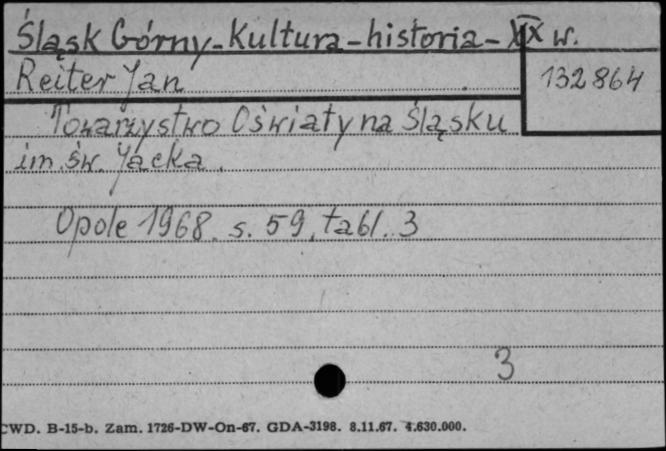 Śląsk Górny-Kultura-historia-XIX w.
Reiter Jan
132864
Towarzystwo Oświaty na Śląsku
im. św. Jacka.
Opole 1968. s. 59, tabl. 3
3
CWD. B-15-b. Zam. 1726-DW-On-67. GDA-3198. 8.11.67. 4.630.000.